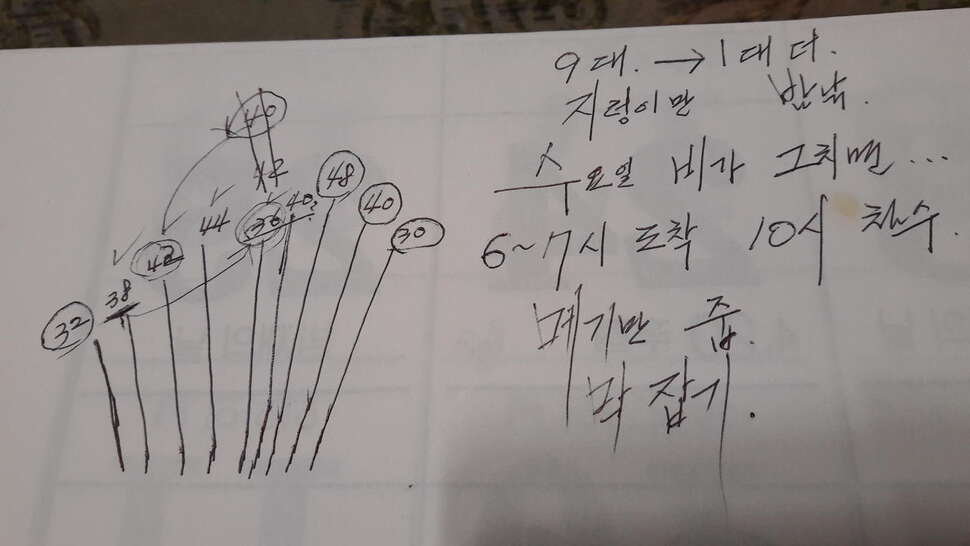 9대. → 1대 더.
지렁이만 밤낚.
수요일 비가 그치면...
6~7시 도착 10시 철수.
메기만 줍.
막 잡기.
40
42
48
44
36
40?
40
30
42
38
32